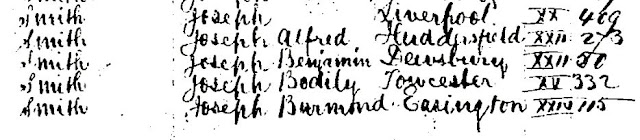 Smith Joseph Liverpool XX 469
Smith Joseph Alfred Huddersfield XXII 273
Smith Joseph Benjamin Dewsbury XXII
Smith Joseph Bodily Towcester XV 332
Smith Joseph Burmond Easington XXIV 115